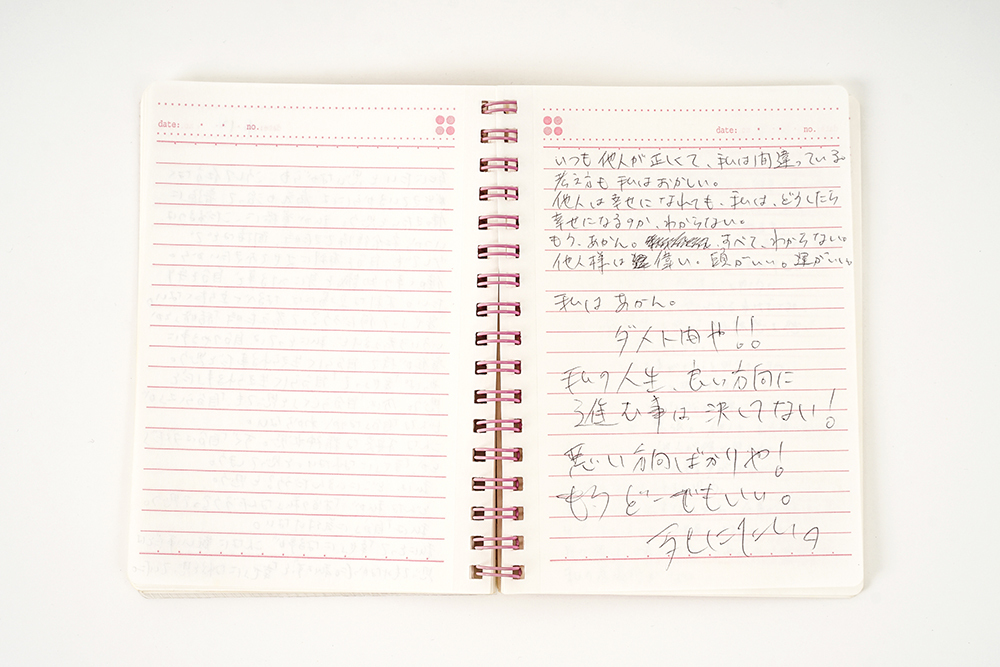 date: ・ ・ no.
date: ・ ・ no.
いつも他人が正しくて、私は間違っている。
考え方も私はおかしい。
他人は幸せになれても、私は、どうしたら
幸せになるのか、わからない。
もう、あかん。すべて、わからない。
他人様は偉い。頭がいい。運がいい。
私はあかん。
ダメ人間や!!
私の人生、良い方向に
進む事は決してない!
悪い方向ばかりや!
もうどーでもいい。
今しにたい。